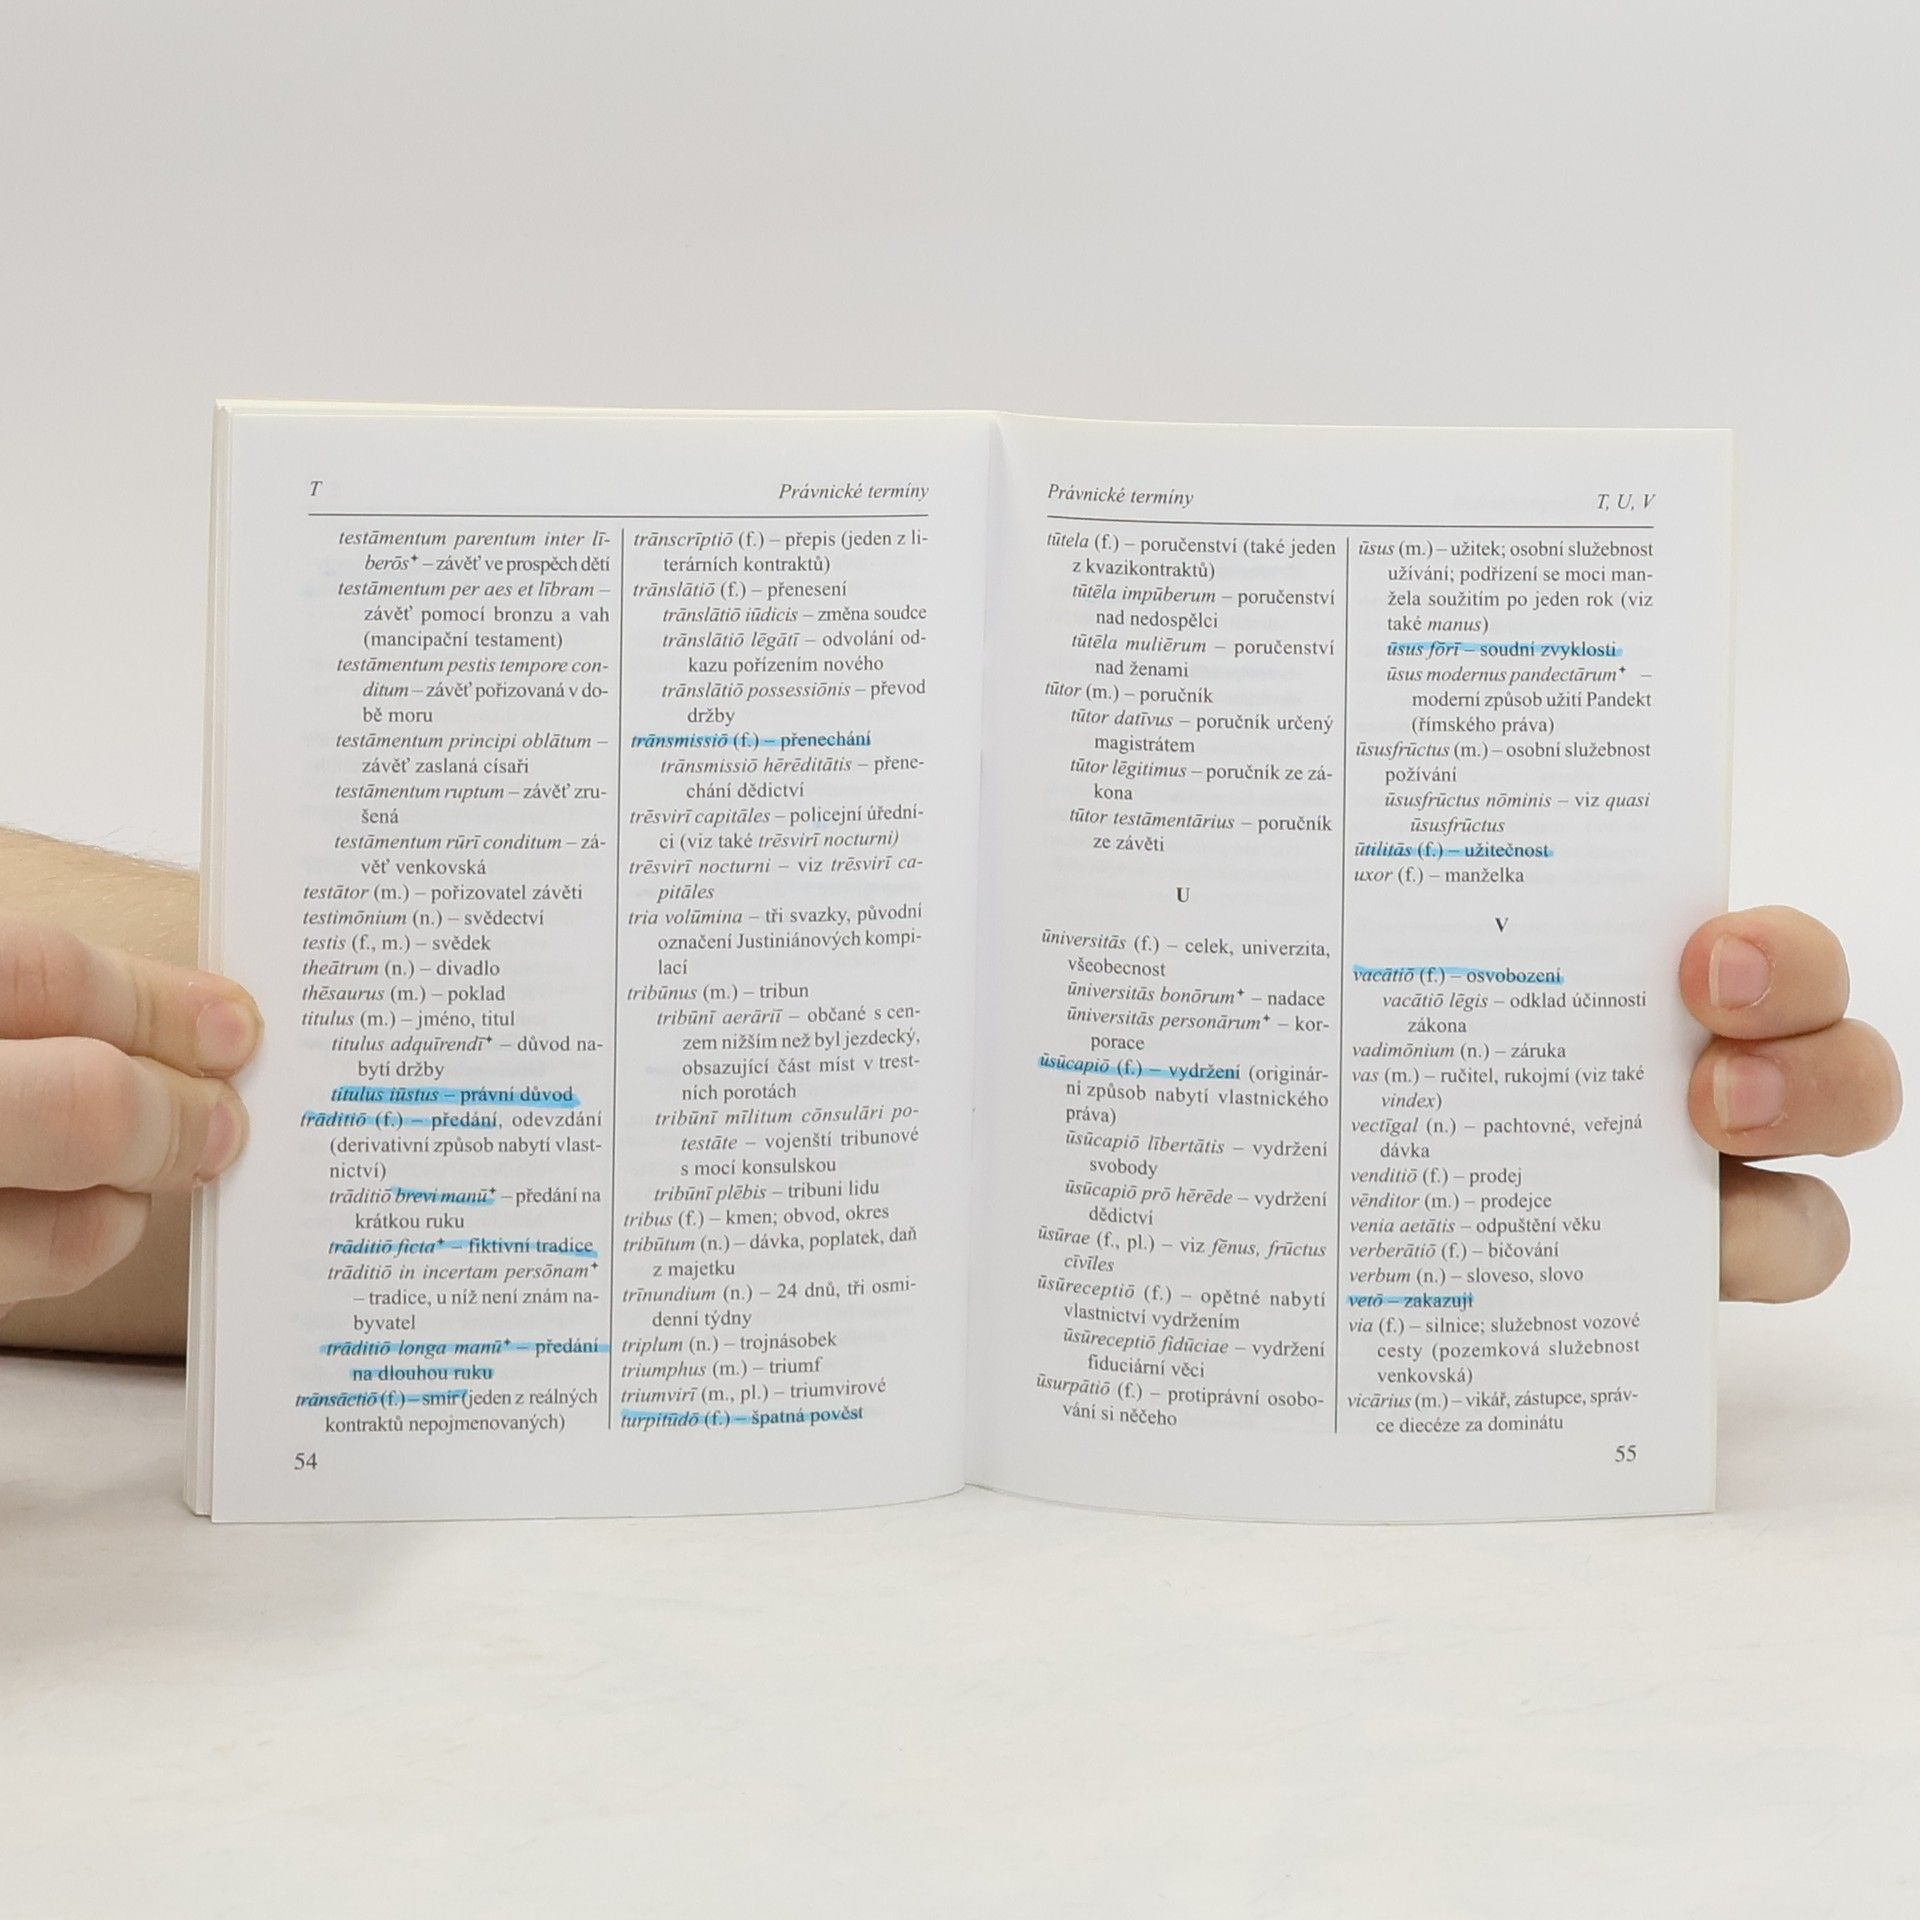 T
Právnické termíny
testāmentum parentum inter lī-
berōs✦ – závěť ve prospěch dětí
testāmentum per aes et lībram –
závěť pomocí bronzu a vah
(mancipační testament)
testāmentum pestis tempore con-
ditum – závěť pořizovaná v do-
bě moru
testāmentum principi oblātum –
závěť zaslaná císaři
testāmentum ruptum – závěť zru-
šená
testāmentum rūrī conditum – zá-
věť venkovská
testātor (m.) – pořizovatel závěti
testimōnium (n.) – svědectví
testis (f., m.) – svědek
theātrum (n.) – divadlo
thēsaurus (m.) – poklad
titulus (m.) – jméno, titul
titulus adquīrendī✦ – důvod na-
bytí držby
titulus iūstus – právní důvod
trāditiō (f.) – předání, odevzdání
(derivativní způsob nabytí vlast-
nictví)
trāditiō brevi manū✦ – předání na
krátkou ruku
trāditiō ficta✦ – fiktivní tradice
trāditiō in incertam persōnam✦
– tradice, u níž není znám na-
byvatel
trāditiō longa manū✦ – předání
na dlouhou ruku
trānsāctiō (f.) – smír (jeden z reálných
kontraktů nepojmenovaných)
54
trānscrīptiō (f.) – přepis (jeden z li-
terárních kontraktů)
trānslātiō (f.) – přenesení
trānslātiō iūdicis – změna soudce
trānslātiō lēgātī – odvolání od-
kazu pořízením nového
trānslātiō possessiōnis – převod
držby
trānsmissiō (f.) – přenechání
trānsmissiō hērēditātis – přene-
chání dědictví
trēsvirī capitāles – policejní úřední-
ci (viz také trēsvirī nocturni)
trēsvirī nocturni – viz trēsvirī ca-
pitāles
tria volūmina – tři svazky, původní
označení Justiniánových kompi-
lací
tribūnus (m.) – tribun
tribūnī aerāriī – občané s cen-
zem nižším než byl jezdecký,
obsazující část míst v trest-
ních porotách
tribūnī mīlitum cōnsulāri po-
testāte – vojenští tribunové
s mocí konsulskou
tribūnī plēbis – tribuni lidu
tribus (f.) – kmen; obvod, okres
tribūtum (n.) – dávka, poplatek, daň
z majetku
trīnundium (n.) – 24 dnů, tři osmi-
denní týdny
triplum (n.) – trojnásobek
triumphus (m.) – triumf
triumvirī (m., pl.) – triumvirové
turpitūdō (f.) – špatná pověst
Právnické termíny
T, U, V
tūtela (f.) – poručenství (také jeden
z kvazikontraktů)
tūtēla impūberum – poručenství
nad nedospělci
tūtēla muliērum – poručenství
nad ženami
tūtor (m.) – poručník
tūtor datīvus – poručník určený
magistrátem
tūtor lēgitimus – poručník ze zá-
kona
tūtor testāmentārius – poručník
ze závěti
U
ūniversitās (f.) – celek, univerzita,
všeobecnost
ūniversitās bonōrum✦ – nadace
ūniversitās personārum✦ – kor-
porace
ūsūcapiō (f.) – vydržení (originár-
ní způsob nabytí vlastnického
práva)
ūsūcapiō lībertātis – vydržení
svobody
ūsūcapiō prō hērēde – vydržení
dědictví
ūsūrae (f., pl.) – viz fēnus, frūctus
cīvīles
ūsūreceptiō (f.) – opětné nabytí
vlastnictví vydržením
ūsūreceptiō fidūciae – vydržení
fiduciární věci
ūsurpātiō (f.) – protiprávní osobo-
vání si něčeho
ūsus (m.) – užitek; osobní služebnost
užívání; podřízení se moci man-
žela soužitím po jeden rok (viz
také manus)
ūsus fōrī – soudní zvyklosti
ūsus modernus pandectārum✦ –
moderní způsob užití Pandekt
(římského práva)
ūsusfrūctus (m.) – osobní služebnost
požívání
ūsusfrūctus nōminis – viz quasi
ūsusfrūctus
ūtilitās (f.) – užitečnost
uxor (f.) – manželka
V
vacātiō (f.) – osvobození
vacātiō lēgis – odklad účinnosti
zákona
vadimōnium (n.) – záruka
vas (m.) – ručitel, rukojmí (viz také
vindex)
vectīgal (n.) – pachtovné, veřejná
dávka
venditiō (f.) – prodej
vēnditor (m.) – prodejce
venia aetātis – odpuštění věku
verberātiō (f.) – bičování
verbum (n.) – sloveso, slovo
vetō – zakazuji
via (f.) – silnice; služebnost vozové
cesty (pozemková služebnost
venkovská)
vicārius (m.) – vikář, zástupce, správ-
ce diecéze za dominátu
55